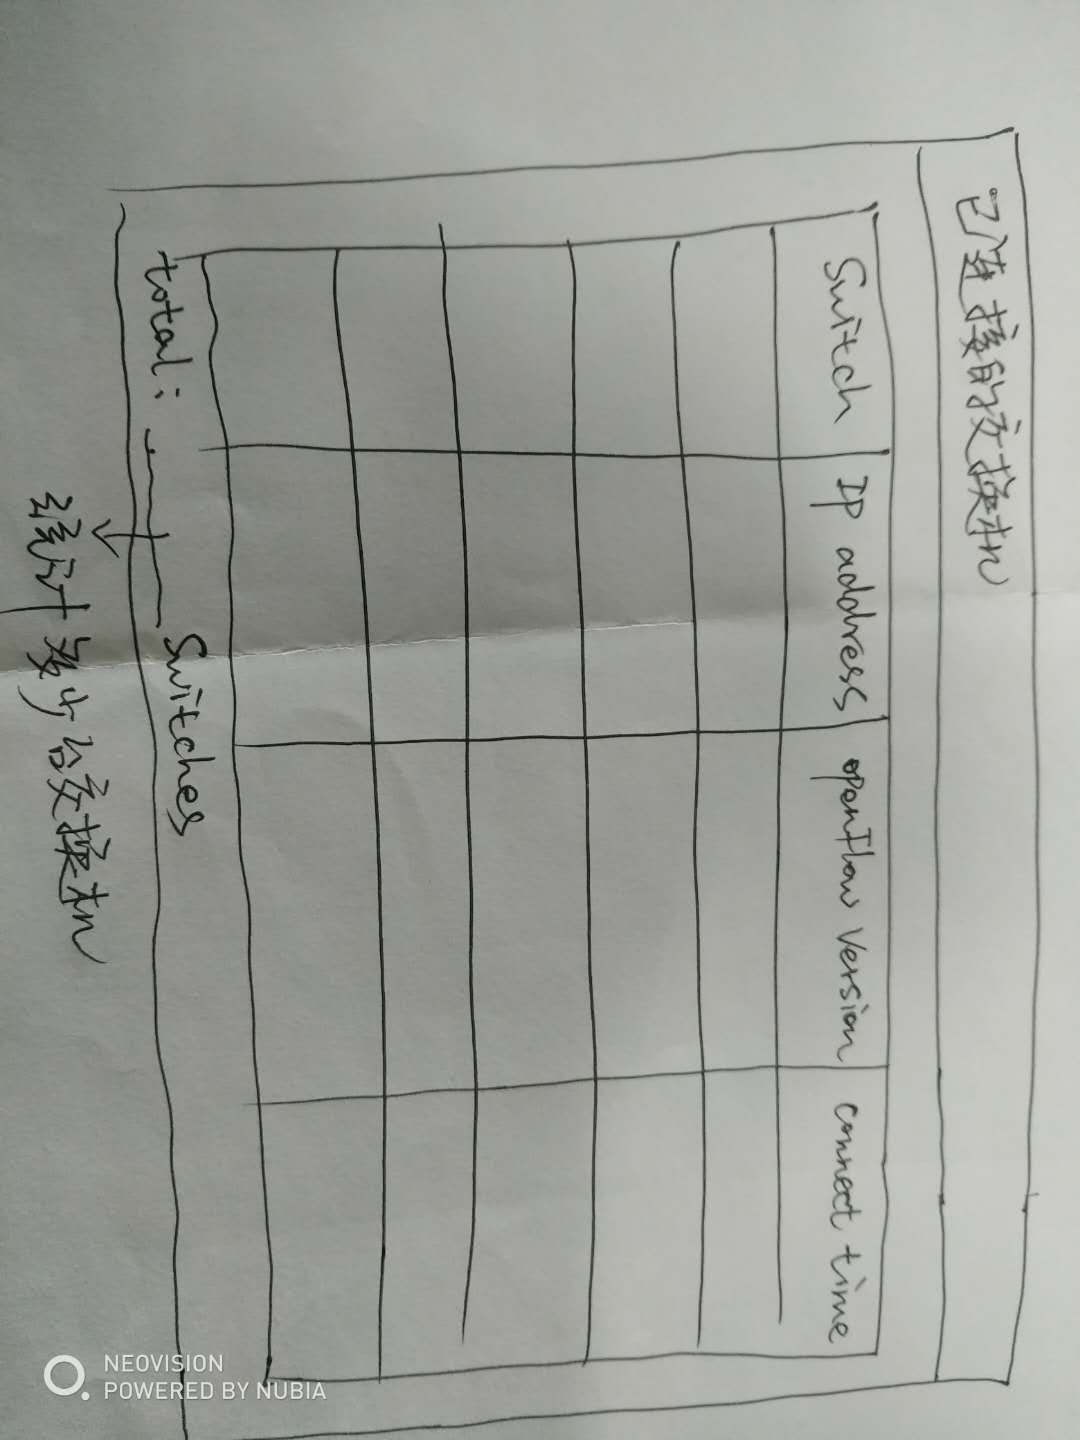 已连接的交换机
Switch IP address openflow Version connect time
total: Switches
统计多少台交换机
NEOVISION
POWERED BY NUBIA